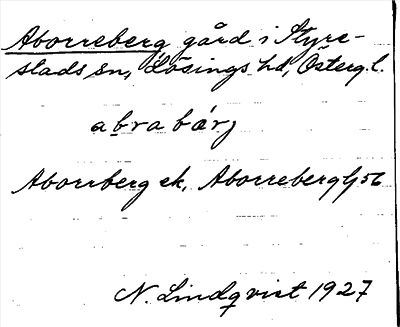 Aborreberg gård i Styre-
stads sn, Lösings hd, Österg. l.
abrabærj
Aborrberg ek, Aborreberg Gj 56
N. Lindqvist 1927